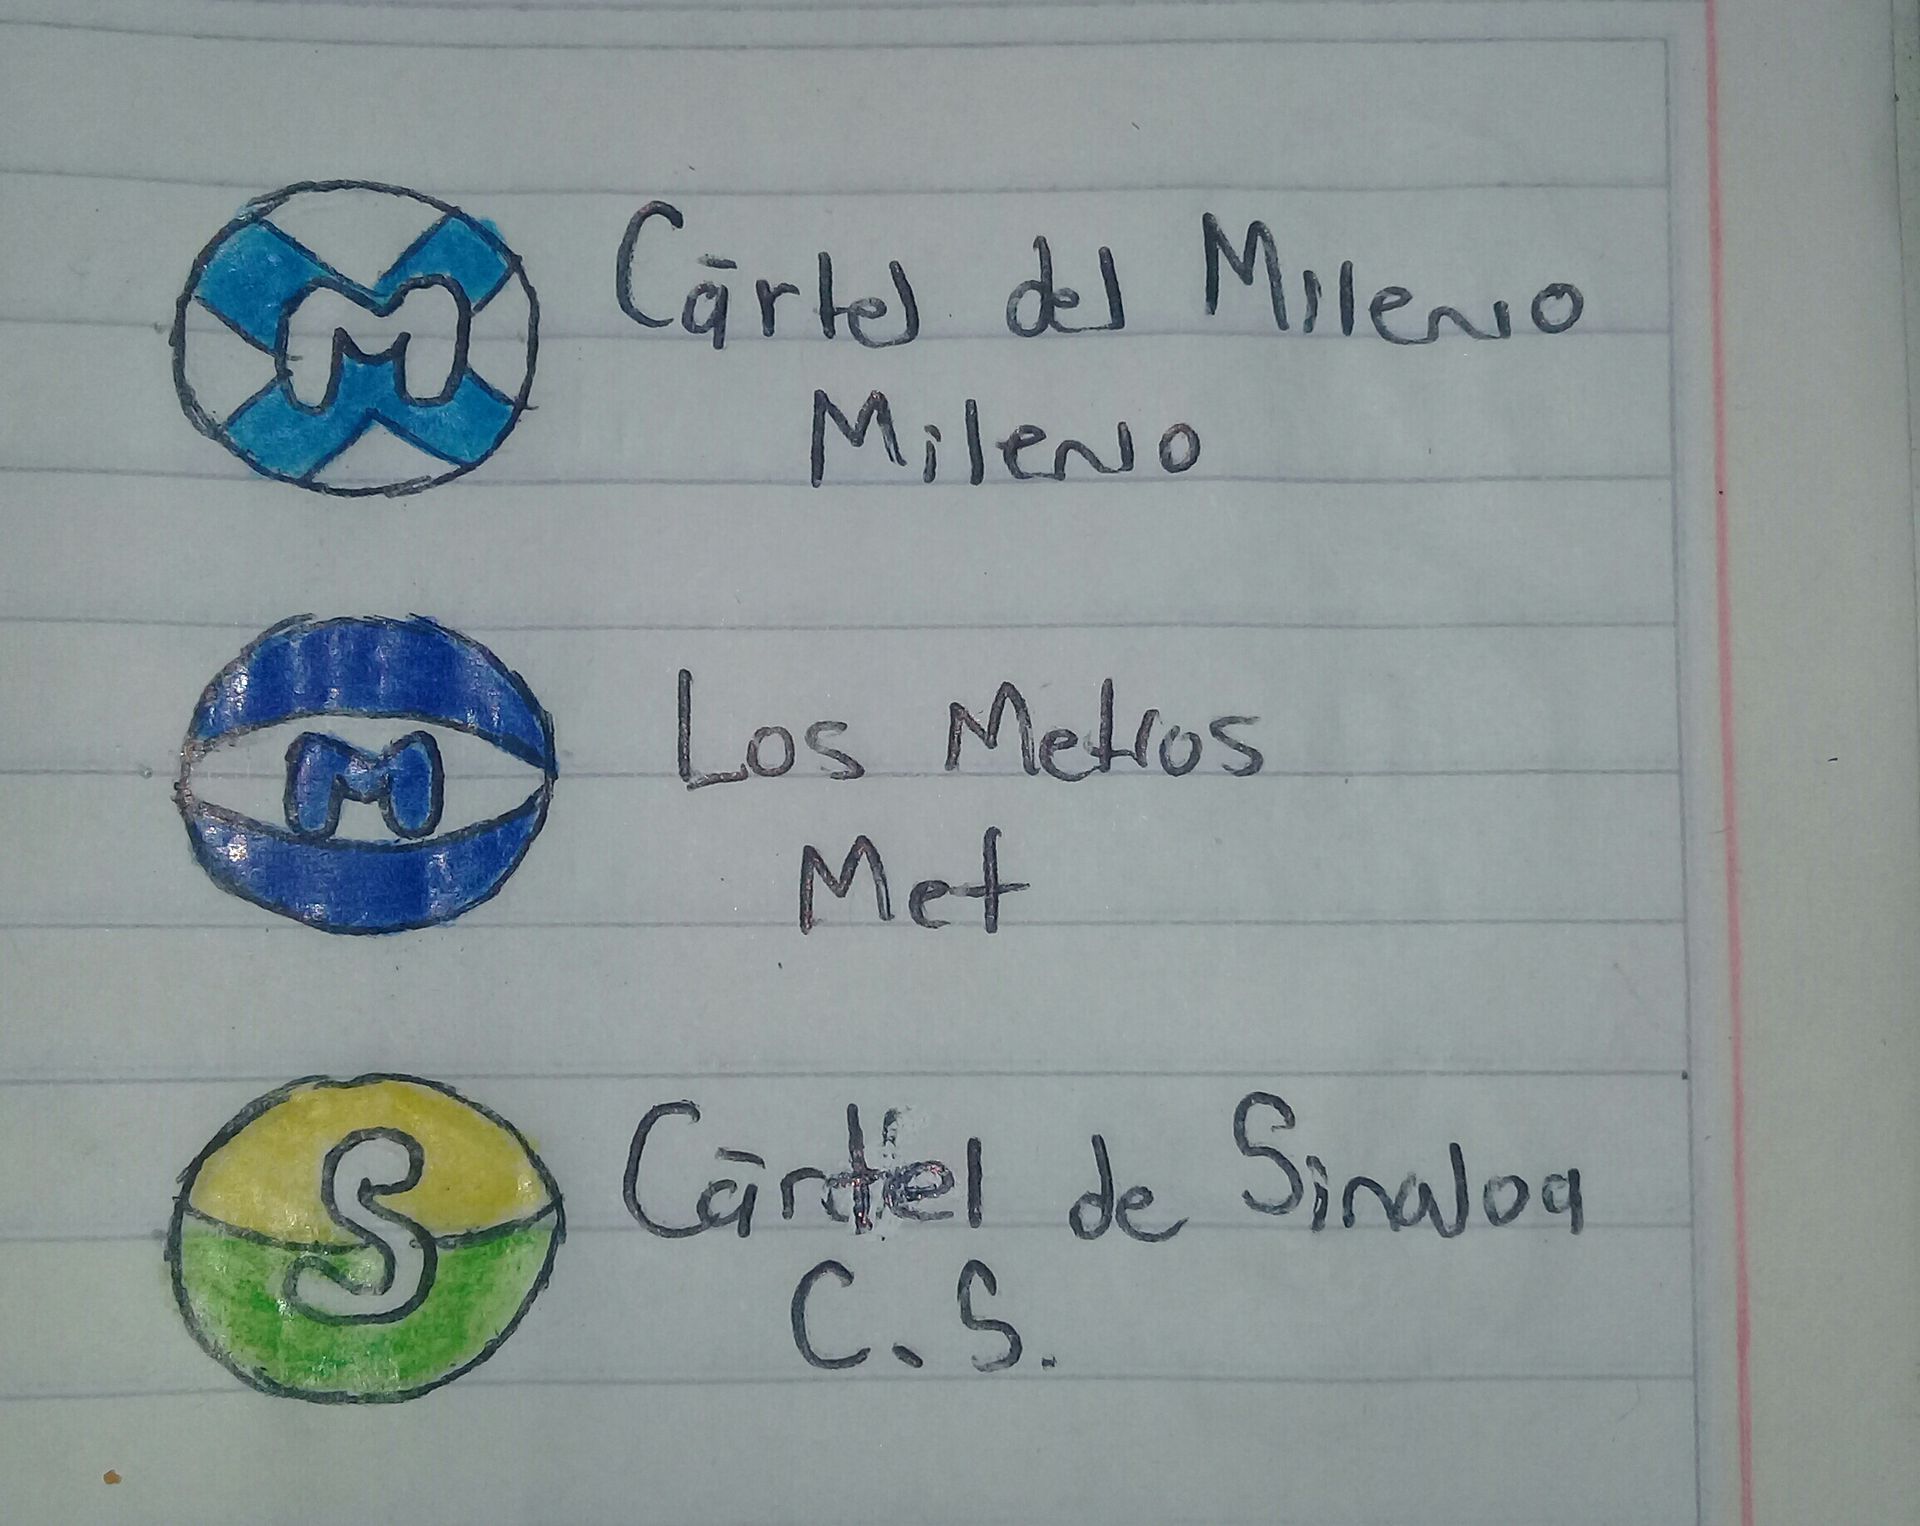 M
Cārtel del Milenio
Milenio
M
Los Metros
Met
S
Cārtel de Sinaloa
C.S.